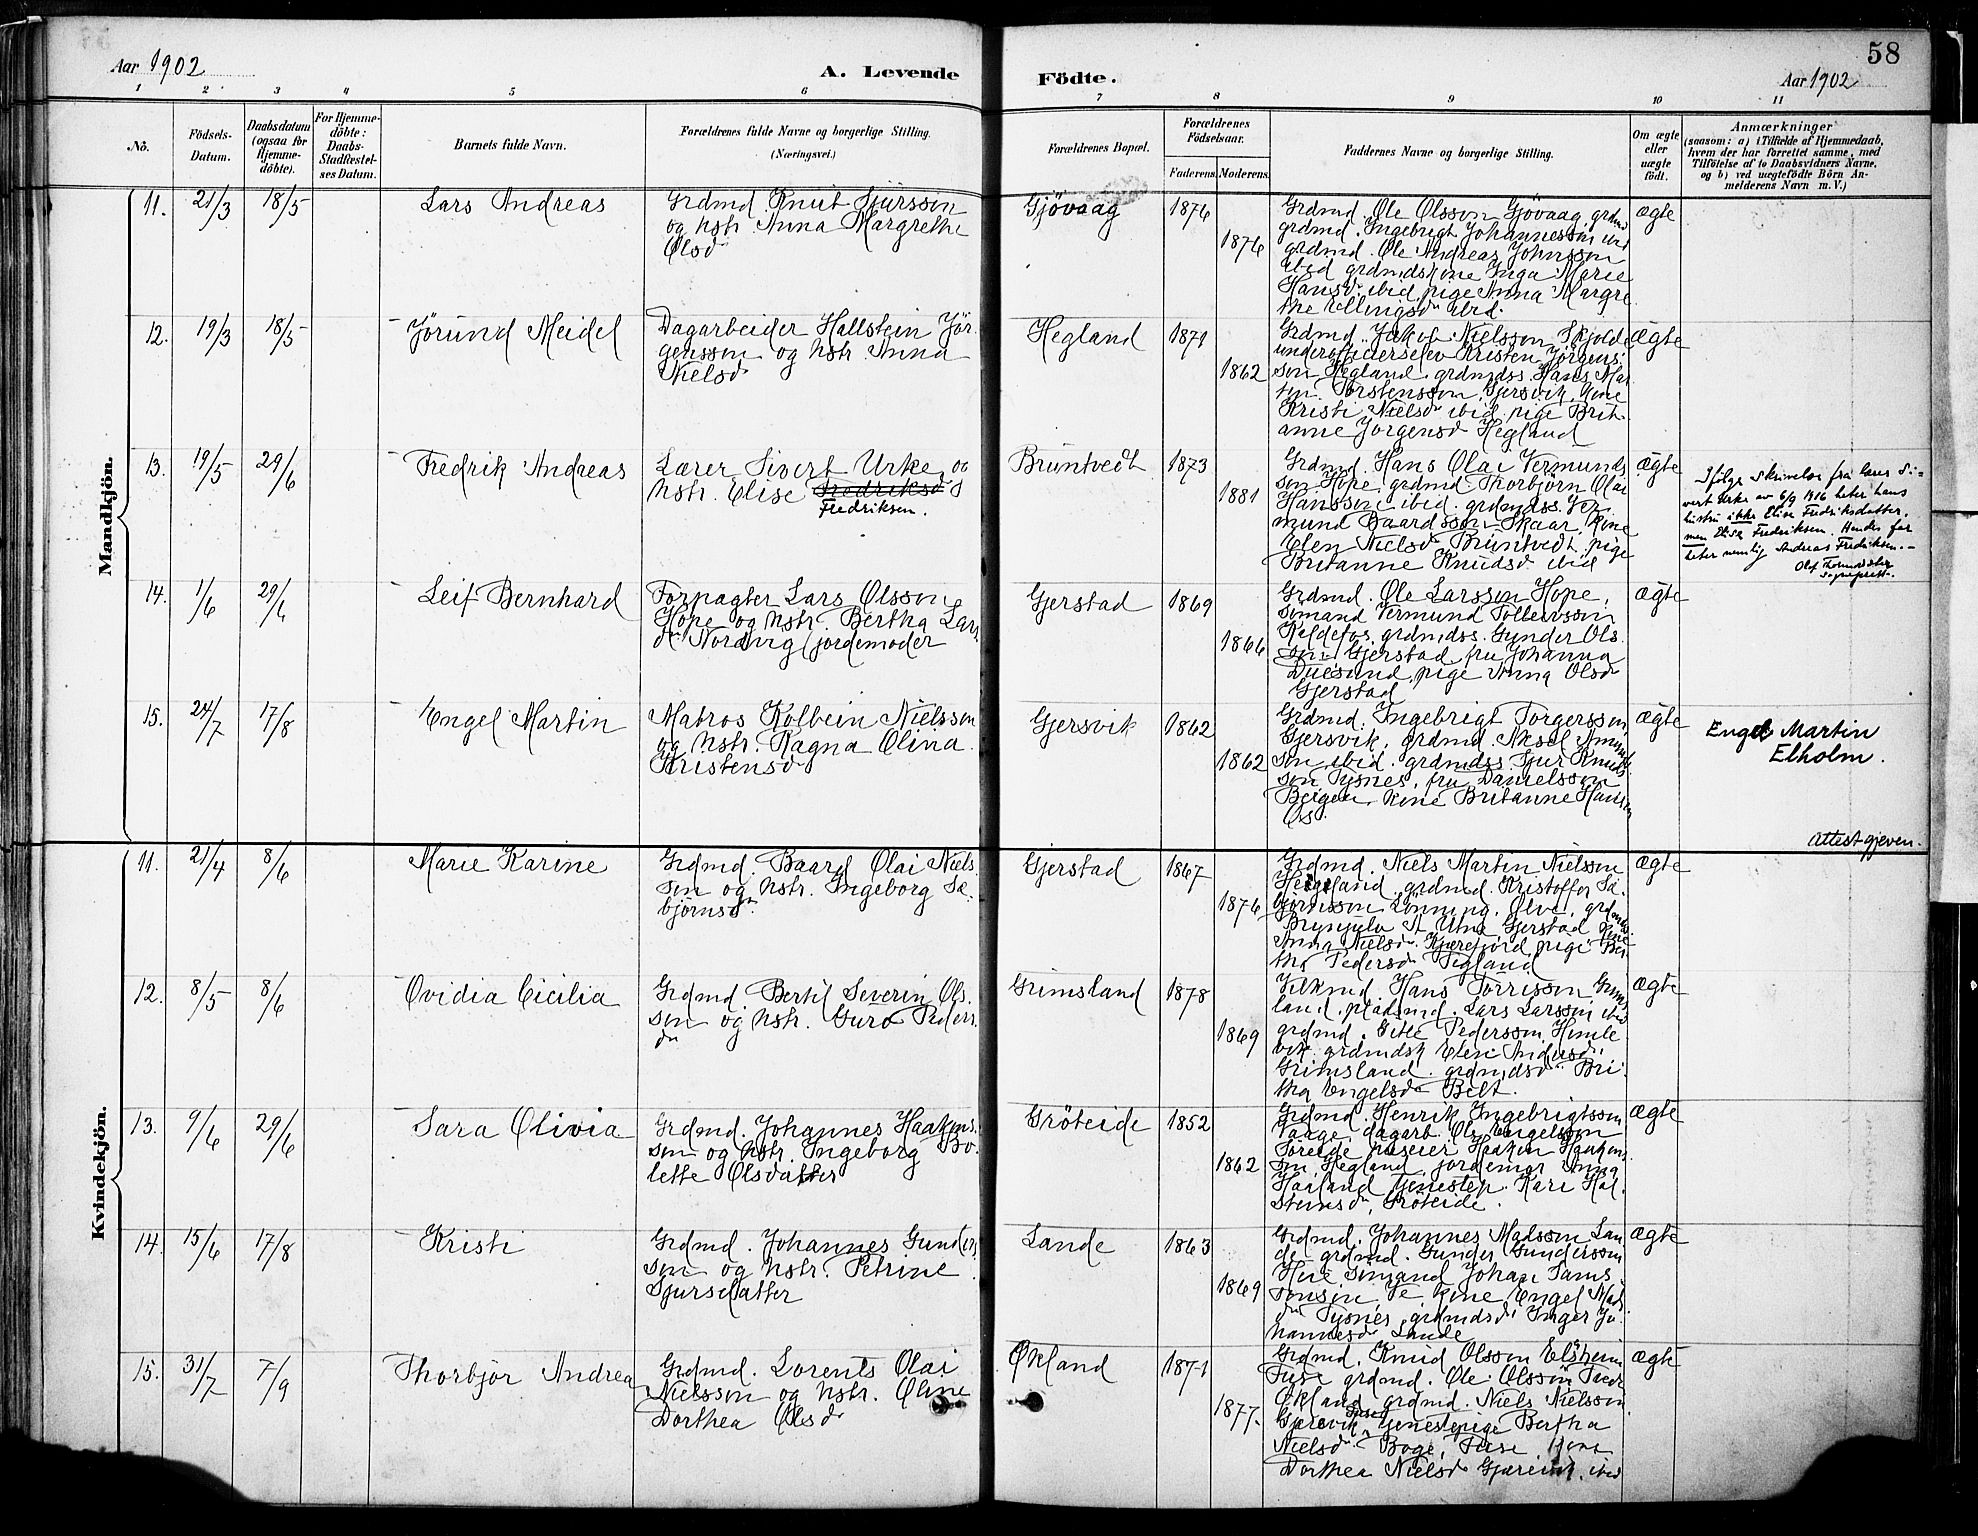 58
Aar 1902
A. Levende
Födte.
Aar 1902
1 2 3 4 5 6 7 8 9 10 11
No.
Födsels-
Datum.
Daabsdatum
(ogsaa for
Hjemme-
döbte).
For Hjemme-
döbte:
Daabs-
Stadfæstel-
ses Datum.
Barnets fulde Navn.
Forældrenes fulde Navne og borgerlige Stilling.
(Næringsvei.)
Forældrenes Bopæl.
Forældrenes
Födselsaar.
Faderens. Moderens.
Faddernes Navne og borgerlige Stilling.
Om ægte
eller
uægte
födt.
Anmærkninger
(saasom: a) i Tilfælde af Hjemmedaab,
hvem der har forrettet samme, med
Tilföielse af to Daabsvidners Navne,
og b) ved uægtefödte Börn An-
melderens Navn m. V.)
Mandkjön.
11. 21/3 18/5 Lars Andreas
Grdmd. Knut Sjursson
og hstr. Anna Margrethe
Olsd
Gjövaag 1876
1876
Grdmd. Ole Olsson Gjövaag,
grdmd. Ingebrigt Johannesson ibid
grdmd. Ole Andreas Johnsson
ibid grdmdskone Inga Marie
Hansd ibid, pige Anna Margre
the Ellingsd
ægte
12. 19/3 18/5 Jörund Meidel
Dagarbeider Hallstein Jör
gensson og hstr. Anna
Nielsd
Hegland 1871
1862
Grdmd. Jakob Nielsson Skjolde
underofficerselev Kristen Jörgens:
son Hegland, grdmdss. Hans Mar
tin Torstensson, Gjersvik, kone
Kristi Nielsd ibid, pige Brit
anne Jörgensd Hegland
ægte
13. 19/5 29/6 Fredrik Andreas
Lærer Sivert Urke og
hstr. Elise Fredriksd
Fredriksen.
Bruntvedt 1873
1881
Grdmd. Hans Olai Vermunds
son Hope, grdmd Thorbjörn Olai
Hansson ibid. grdmdss. Ver
mund Baardsson Skaar, kone
Elen Nielsd Bruntvedt, pige
Britanne Knudsd ibid
ægte
Ifölge skrivelse fra lærer Si-
vert Urke av 6/9 1916 heter hans
hustru ikke Elise Fredriksdatter,
men Elise Fredriksen. Hendes far
heter nemlig Andreas Fredriksen.-
Sogneprest.
14. 1/6 29/6 Leif Bernhard
Forpagter Lars Olsson
Hope og hstr. Bertha Lars
d Nordvig (jordemoder
Gjerstad 1869
1866
Grdmd. Ole Larsson Hope,
sömand Vermund Tollevsson
Kaldefos, grdmdss. Gunder Ols
son Gjerstad, fru Johanna
Duesund, pige Anna Olsd
Gjerstad
ægte
15. 24/7 17/8 Engel Martin
Matros Kolbein Nielsson
og hstr. Ragna Olina
Kristensd
Gjersvik 1862
1862
Grdmd. Ingebrigt Torgersson
Gjersvik, grdmd. Aksel
son ibid. grdmdss Sjur Knuds
son Tysnes, fru Danielsson
Bergen, kone Britanne Hansen
Os.
ægte
Engel Martin
Elholm.
Attest gjeven.
Kvindekjön.
11. 21/4 8/6 Marie Karine
Grdmd. Baard Olai Niels
son og hstr. Ingeborg Sæ-
björnsd
Gjerstad 1867
1876
Grdmd. Niels Martin Nielsson
Hegland, grdmd. Kristoffer Sæ.
björnsson Lönning, Ölve,
Brynjulv A Utne Gjerstad kone
Anna Nielsd. Kjærefjord pige Ber
tha Pedersd Tegland
ægte
12. 8/5 8/6 Ovidia Cicilia
Grdmd. Bertil Severin Ols.
son og hstr. Guro Peders
d
Grimsland 1878
1869
Hans Torrisson Grims
land, pladsmd. Lars Larsson ibid
grdmd. Gitle Pedersson Himle
vik grdmdsk Elen
Grimsland. grdmdsd Bri
tha Engelsd Belt.
ægte
13. 9/6 29/6 Sara Olivia
Grdmd. Johannes Haakons.
son og hstr. Ingeborg Bo
lette Olsdatter
Gröteide 1852
1862
Grdmd. Henrik Ingebrigtsson
Vaage, dagarb. Ole Engelsson
Söreide, Haakon Haakons
son Hegland, jordemor Anna
Haaland Tjenestep. Kari Hal.
stensd, Gröteide.
ægte
14. 15/6 17/8 Kristi
Grdmd. Johannes Gunders
son og hstr. Petrine
Sjursdatter
Lande 1863
1869
Grdmd. Johannes Madsson Lan
de, grdmd. Gunder Gundersson
sömand Johan Sams
onson Ve kone Engel Mads
d Tysnes, grdmdsd Inger Jo
hannesd Lande
ægte
15. 31/7 7/9 Thorbjör Andrea
Grdmd. Lorents Olai
Nielsson og hstr. Oline
Dorthea Olsd
Økland 1871
1877
Grdmd. Knud Olsson Elsheim
Fuse grdmd. Ole Olsson
Økland, grdmd. Niels Nielsson
Gjærevik Fuse, tjenestepige Bertha
Nielsd Boge, Fuse,
Dorthea Nielsd Gjærevik, ibid
ægte